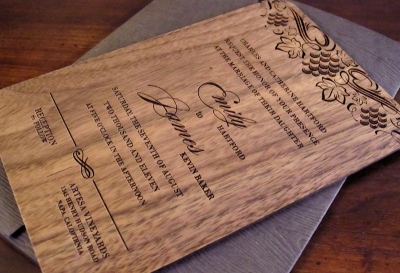 CHARLES AND CATHERINE HARTFORD
REQUEST THE HONOR OF YOUR PRESENCE
AT THE MARRIAGE OF THEIR DAUGHTER
Emily
HARTFORD
to
James
KEVIN BAKER
SATURDAY THE SEVENTH OF AUGUST
TWO THOUSAND AND ELEVEN
AT FIVE O'CLOCK IN THE AFTERNOON
RECEPTION
TO FOLLOW
ARTESA VINEYARDS
1345 HENRY HUDSON ROAD
NAPA, CALIFORNIA